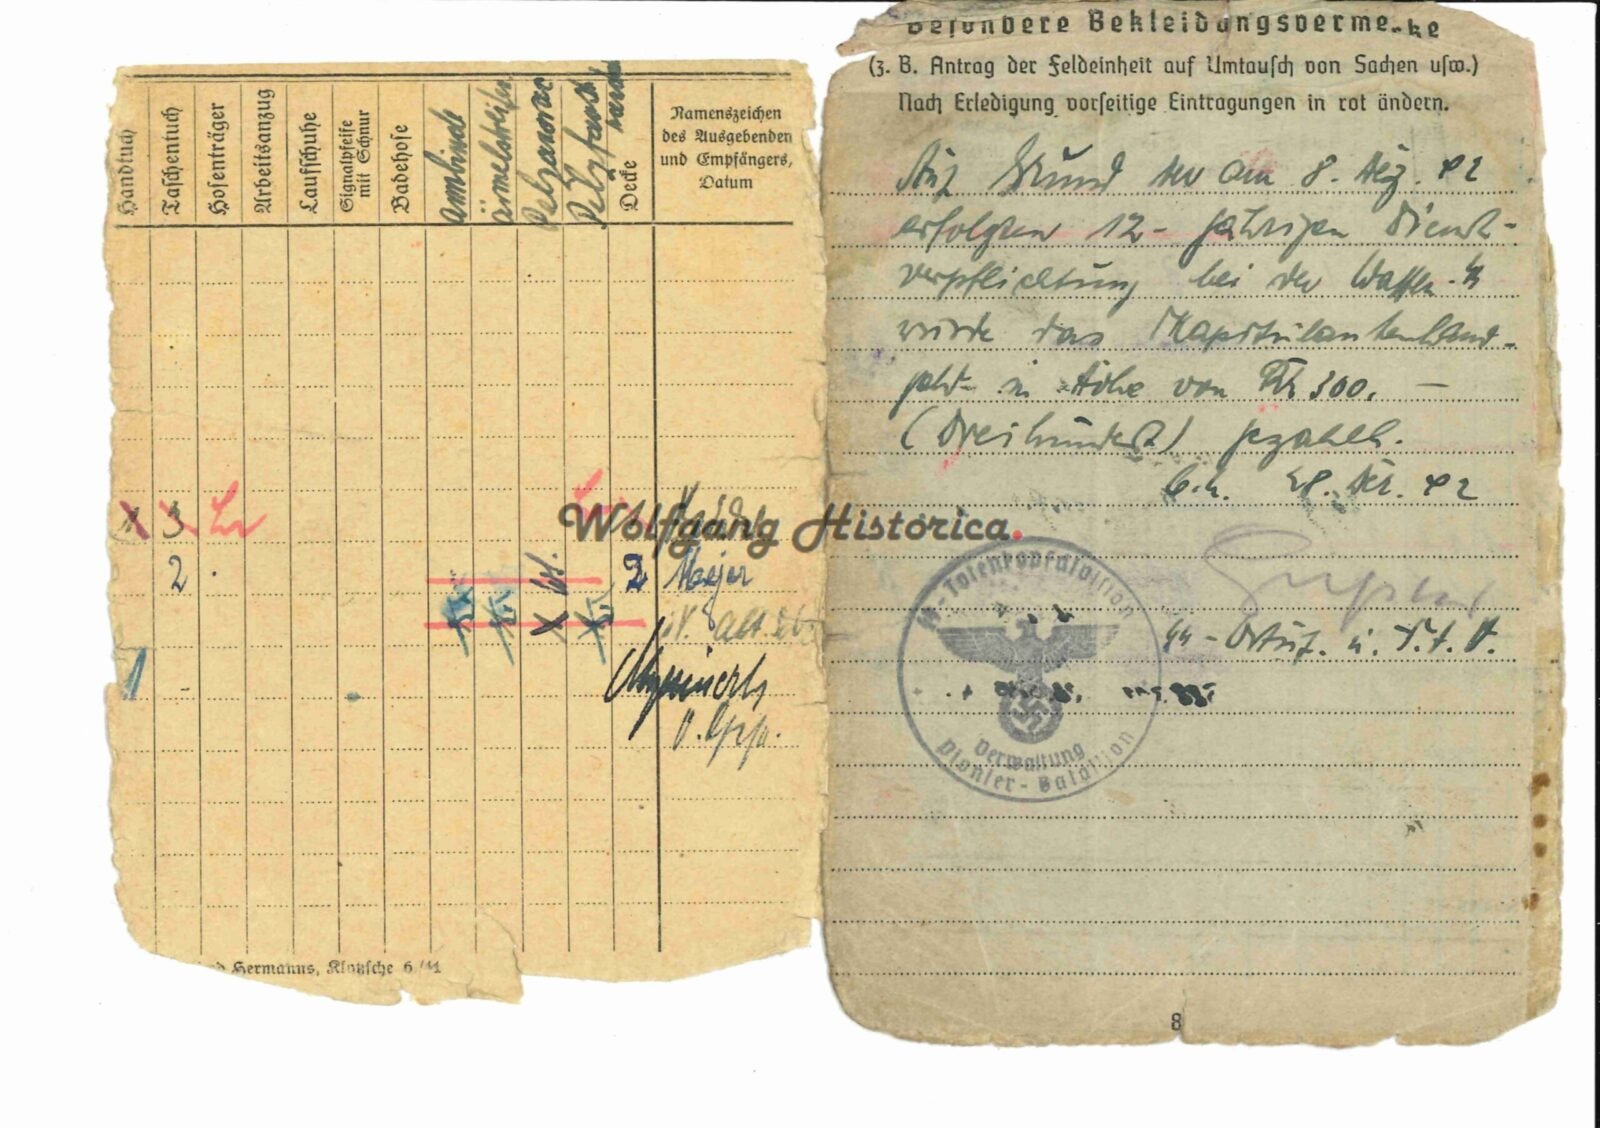 Handtuch
Taschentuch
Hosenträger
Arbeitsanzug
Laufschuhe
Signalpfeife
mit Schnur
Badehose
Armbinde
Ärmelstreifen
Pelzanorac
Pelzfaust
Decke
Namenszeichen
des Ausgebenden
und Empfängers,
Datum
3
2 2 Mejer
1 -
Hermanns, Klotzsche 6/41
Besondere Bekleidungsvermerke
(z. B. Antrag der Feldeinheit auf Umtausch von Sachen usw.)
Nach Erledigung vorseitige Eintragungen in rot ändern.
Auf Grund der am 8. Dez. 42
erfolgten 12-jährigen Dienst-
verpflichtung bei der Waffen-SS
wurde das Kapitulantenhand-
geld in Höhe von RM 300. —
(Dreihundert) gezahlt.
28. Dez. 42
SS-Totenkopfdivision
Verwaltung
Pionier-Bataillon
SS-Ostuf. u.
8
Wolfgang Historica.